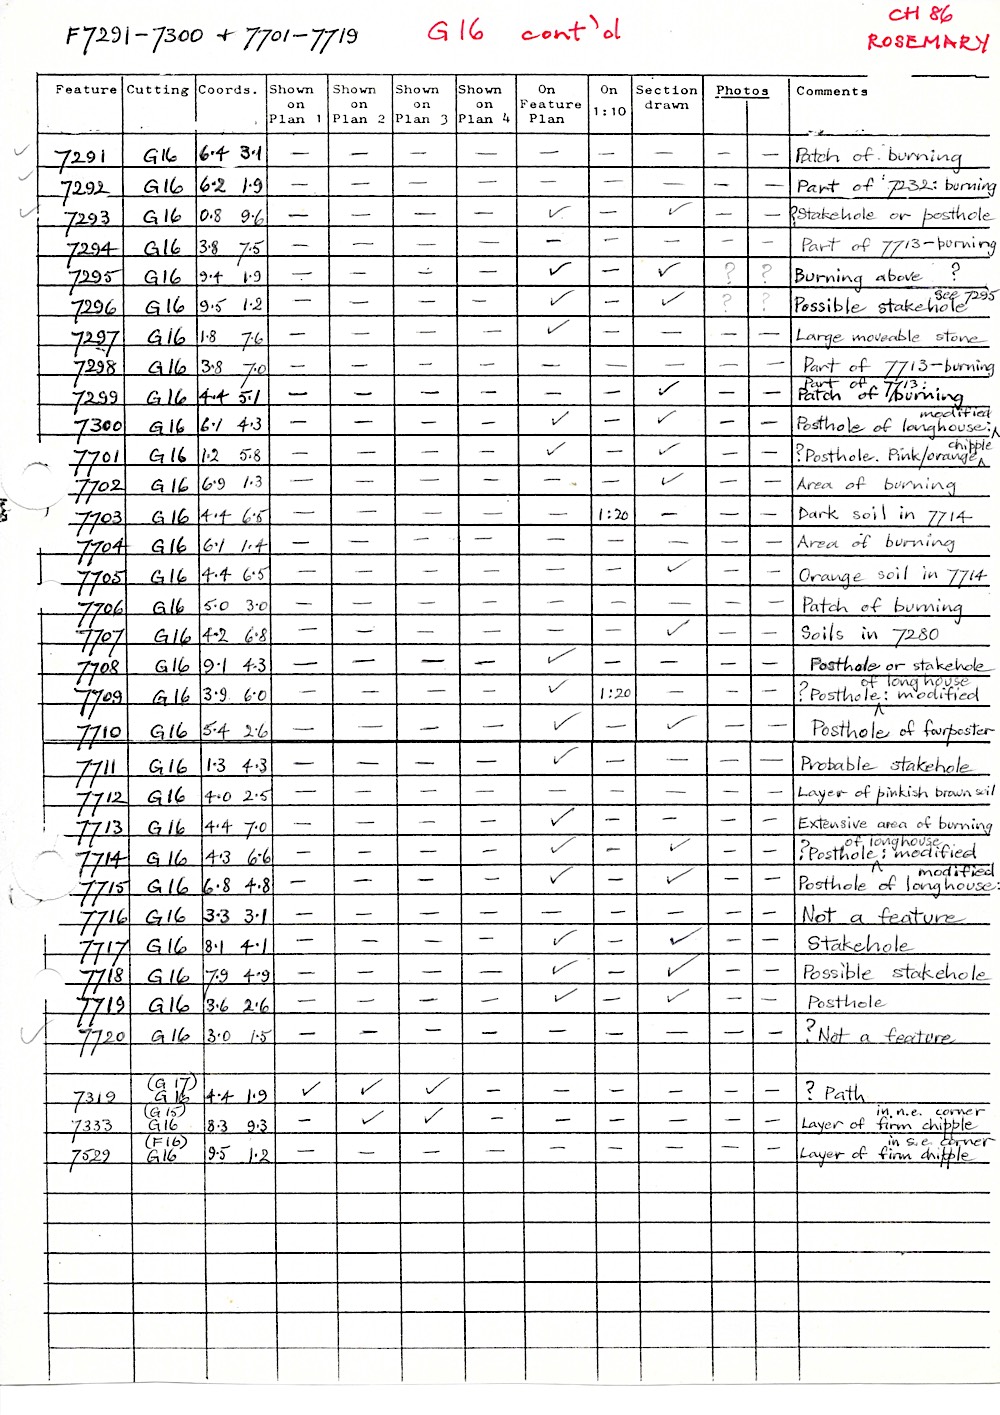 F7291-7300 + 7701-7719 G16 cont'd CH 86
ROSEMARY
Feature Cutting Coords. Shown on Plan 1 Shown on Plan 2 Shown on Plan 3 Shown on Plan 4 On Feature Plan On 1:10 Section drawn Photos Comments
✓ 7291 G16 6.4 3.1 — — — — — — — — — Patch of burning
✓ 7292 G16 6.2 1.9 — — — — — — — — — Part of 7232: burning
✓ 7293 G16 0.8 9.6 — — — — ✓ — ✓ — — ?Stakehole or posthole
7294 G16 3.8 7.5 — — — — — — — — — Part of 7713-burning
7295 G16 9.4 1.9 — — — — ✓ — ✓ ? ? Burning above ?
7296 G16 9.5 1.2 — — — — ✓ — ✓ ? ? Possible stakehole see 7295
7297 G16 1.8 7.6 — — — — ✓ — — — — Large moveable stone
7298 G16 3.8 7.0 — — — — — — — — — Part of 7713-burning
7299 G16 4.4 5.1 — — — — — — ✓ — — Part of 7713: Patch of burning
7300 G16 6.1 4.3 — — — — ✓ — ✓ — — Posthole of longhouse: modified
7701 G16 1.2 5.8 — — — — ✓ — ✓ — — ?Posthole. Pink/orange chipple
7702 G16 6.9 1.3 — — — — — — ✓ — — Area of burning
7703 G16 4.4 6.5 — — — — — 1:20 — — — Dark soil in 7714
7704 G16 6.1 1.4 — — — — — — — — — Area of burning
7705 G16 4.4 6.5 — — — — — — ✓ — — Orange soil in 7714
7706 G16 5.0 3.0 — — — — — — — — — Patch of burning
7707 G16 4.2 6.8 — — — — — — ✓ — — Soils in 7280
7708 G16 9.1 4.3 — — — — ✓ — — — — Posthole or stakehole
7709 G16 3.9 6.0 — — — — ✓ 1:20 — — — ?Posthole of longhouse: modified
7710 G16 5.4 2.6 — — — — ✓ — ✓ — — Posthole of fourposter
7711 G16 1.3 4.3 — — — — ✓ — — — — Probable stakehole
7712 G16 4.0 2.5 — — — — — — — — — Layer of pinkish brown soil
7713 G16 4.4 7.0 — — — — ✓ — — — — Extensive area of burning
7714 G16 4.3 6.6 — — — — ✓ — ✓ — — ?Posthole of longhouse: modified
7715 G16 6.8 4.8 — — — — ✓ — ✓ — — Posthole of longhouse: modified
7716 G16 3.3 3.1 — — — — — — — — — Not a feature
7717 G16 8.1 4.1 — — — — ✓ — ✓ — — Stakehole
7718 G16 7.9 4.9 — — — — ✓ — ✓ — — Possible stakehole
7719 G16 3.6 2.6 — — — — ✓ — ✓ — — Posthole
✓ 7720 G16 3.0 1.5 — — — — — — — — — ?Not a feature
7319 (G17) G16 4.4 1.9 ✓ ✓ ✓ — — — — — — ? Path
7333 (G15) G16 8.3 9.3 — ✓ ✓ — — — — — — Layer of firm chipple in n.e. corner
7529 (F16) G16 9.5 1.2 — — — — — — — — — Layer of firm chipple in s.e. corner